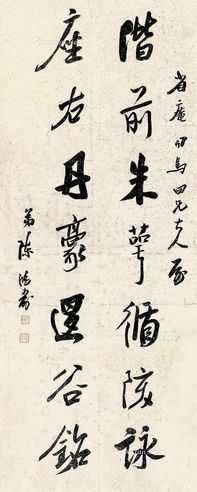 省庵司馬四兄大人属
階前朱萼循陔詠
座右丹豪谷銘
弟陳鴻壽